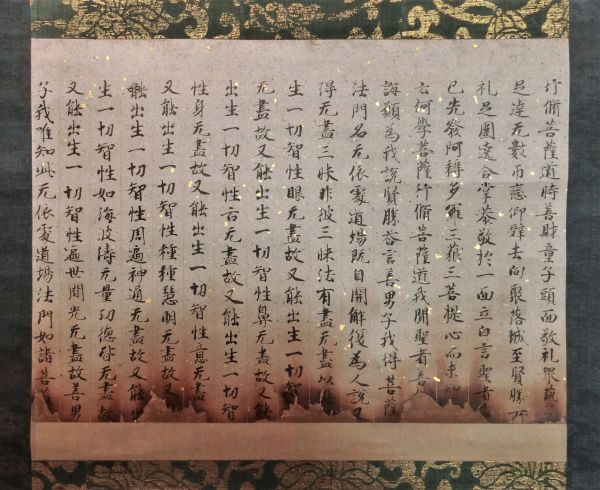 行脩菩薩道時善財童子頭面敬礼眾藝之
足遶无數帀戀仰辝去向聚落城至賢勝所
礼足圍遶合掌恭敬於一面立白言聖者
已先發阿耨多羅三藐三菩提心而未知
云何學菩薩行脩菩薩道我聞聖者善
誨願為我說賢勝荅言善男子我得菩薩
法門名无依處道場既自開解復為人說又
得无盡三昧非彼三昧法有盡无盡以能
生一切智性眼无盡故又能出生一切智
无盡故又能出生一切智性鼻无盡故又能
出生一切智性舌无盡故又能出生一切智
性身无盡故又能出生一切智性意无盡
又能出生一切智性種種慧明无盡故又
能出生一切智性周遍神通无盡故又能出
生一切智性如海波濤无量功德皆无盡故
又能出生一切智性遍世間光无盡故善男
子我唯知此无依處道場法門如諸菩